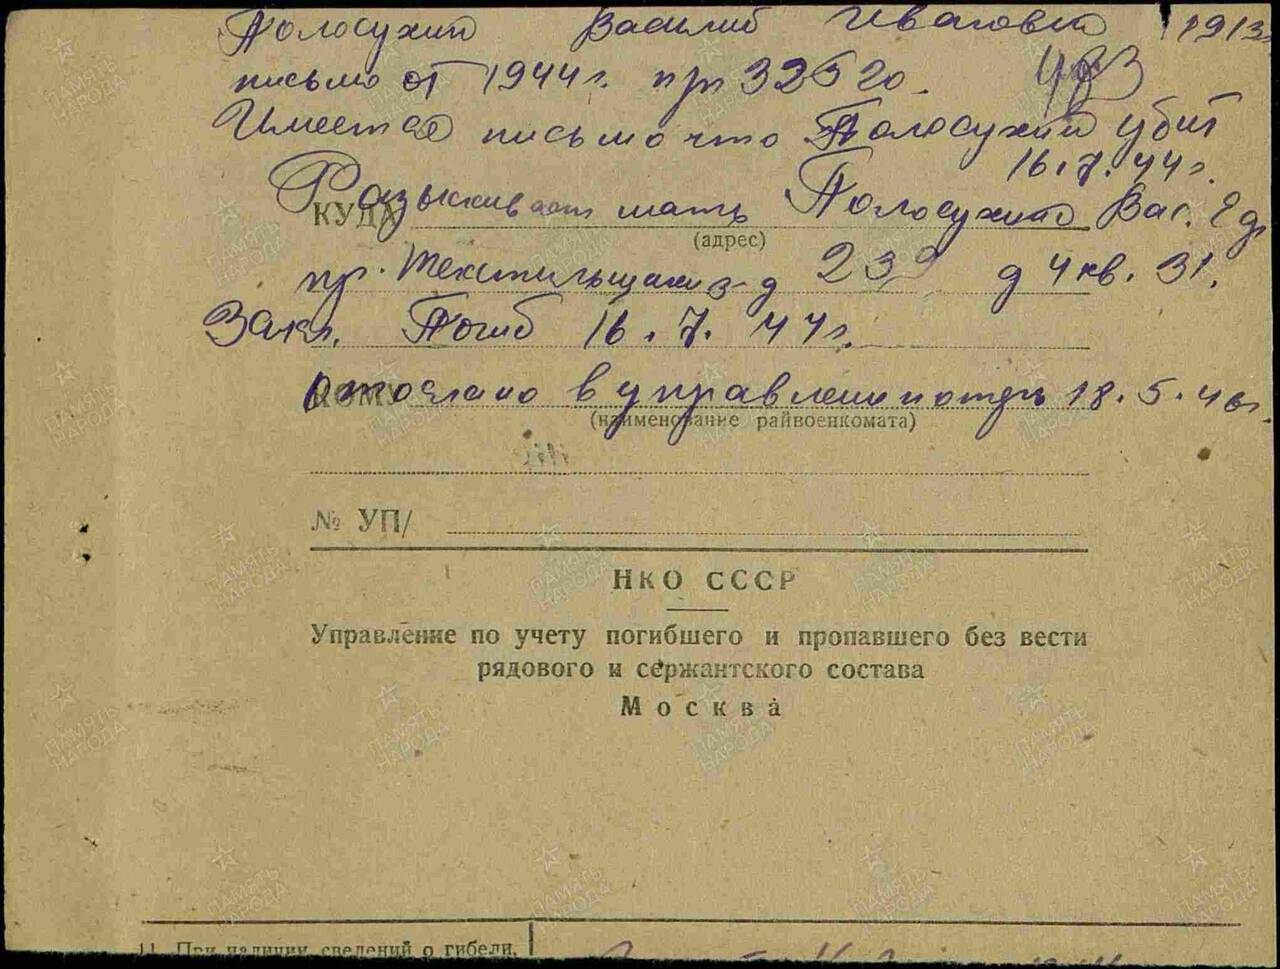 Полосухин Василий Иванович 1913
письмо от 1944г. пп 32520.
Имеется письмо что Полосухин убит
16.7.44г.
Разыскивает мать Полосухина Вас.
КУДА
(адрес)
пр. Текстильщики д 4 кв. 31.
Закл. Погиб 16.7.44г.
КОМУ
отослано в управлени потерь 18.5.46г.
(наименование райвоенкомата)
№ УП/
НКО СССР
Управление по учету погибшего и пропавшего без вести
рядового и сержантского состава
Москва
11. При наличии сведений о гибели,
ПАМЯТЬ НАРОДА